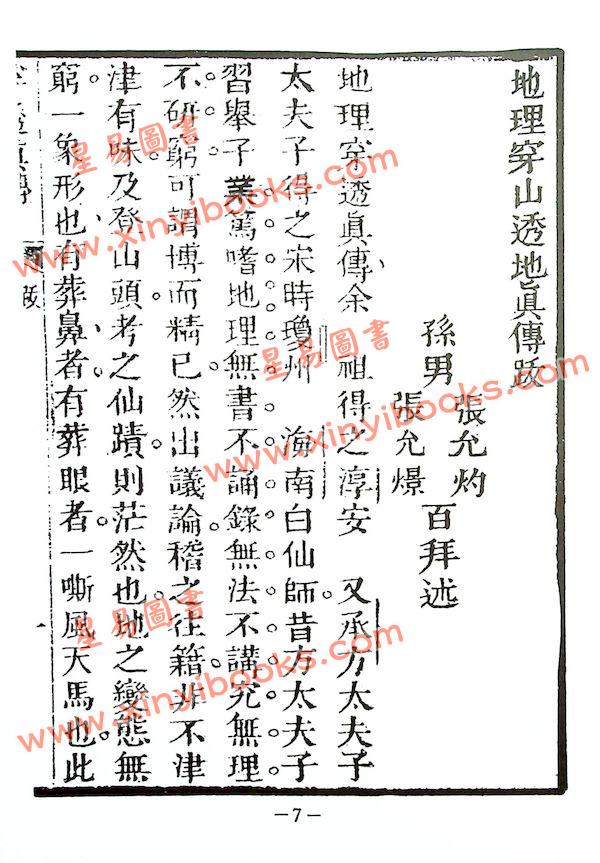 地理穿山透地眞傳跋
孫男 張允灼 百拜述
張允煜
地理穿透眞傳余 祖得之淳安 又承方太夫子
太夫子得之宋時瓊州 海南白仙師昔方太夫子
習舉子業篤嗜地理無書不誦錄無法不講究無理
不研窮可謂博而精已然出議論稽之往籍非不津
津有味及登山頭考之仙蹟則茫然也地之變態無
窮一象形也有葬鼻者有葬眼者一嘶風天馬也此
跋
星易圖書
www.xinyibooks.com
星易圖書
www.xinyibooks.com
星易圖書
www.xinyibooks.com
—7—